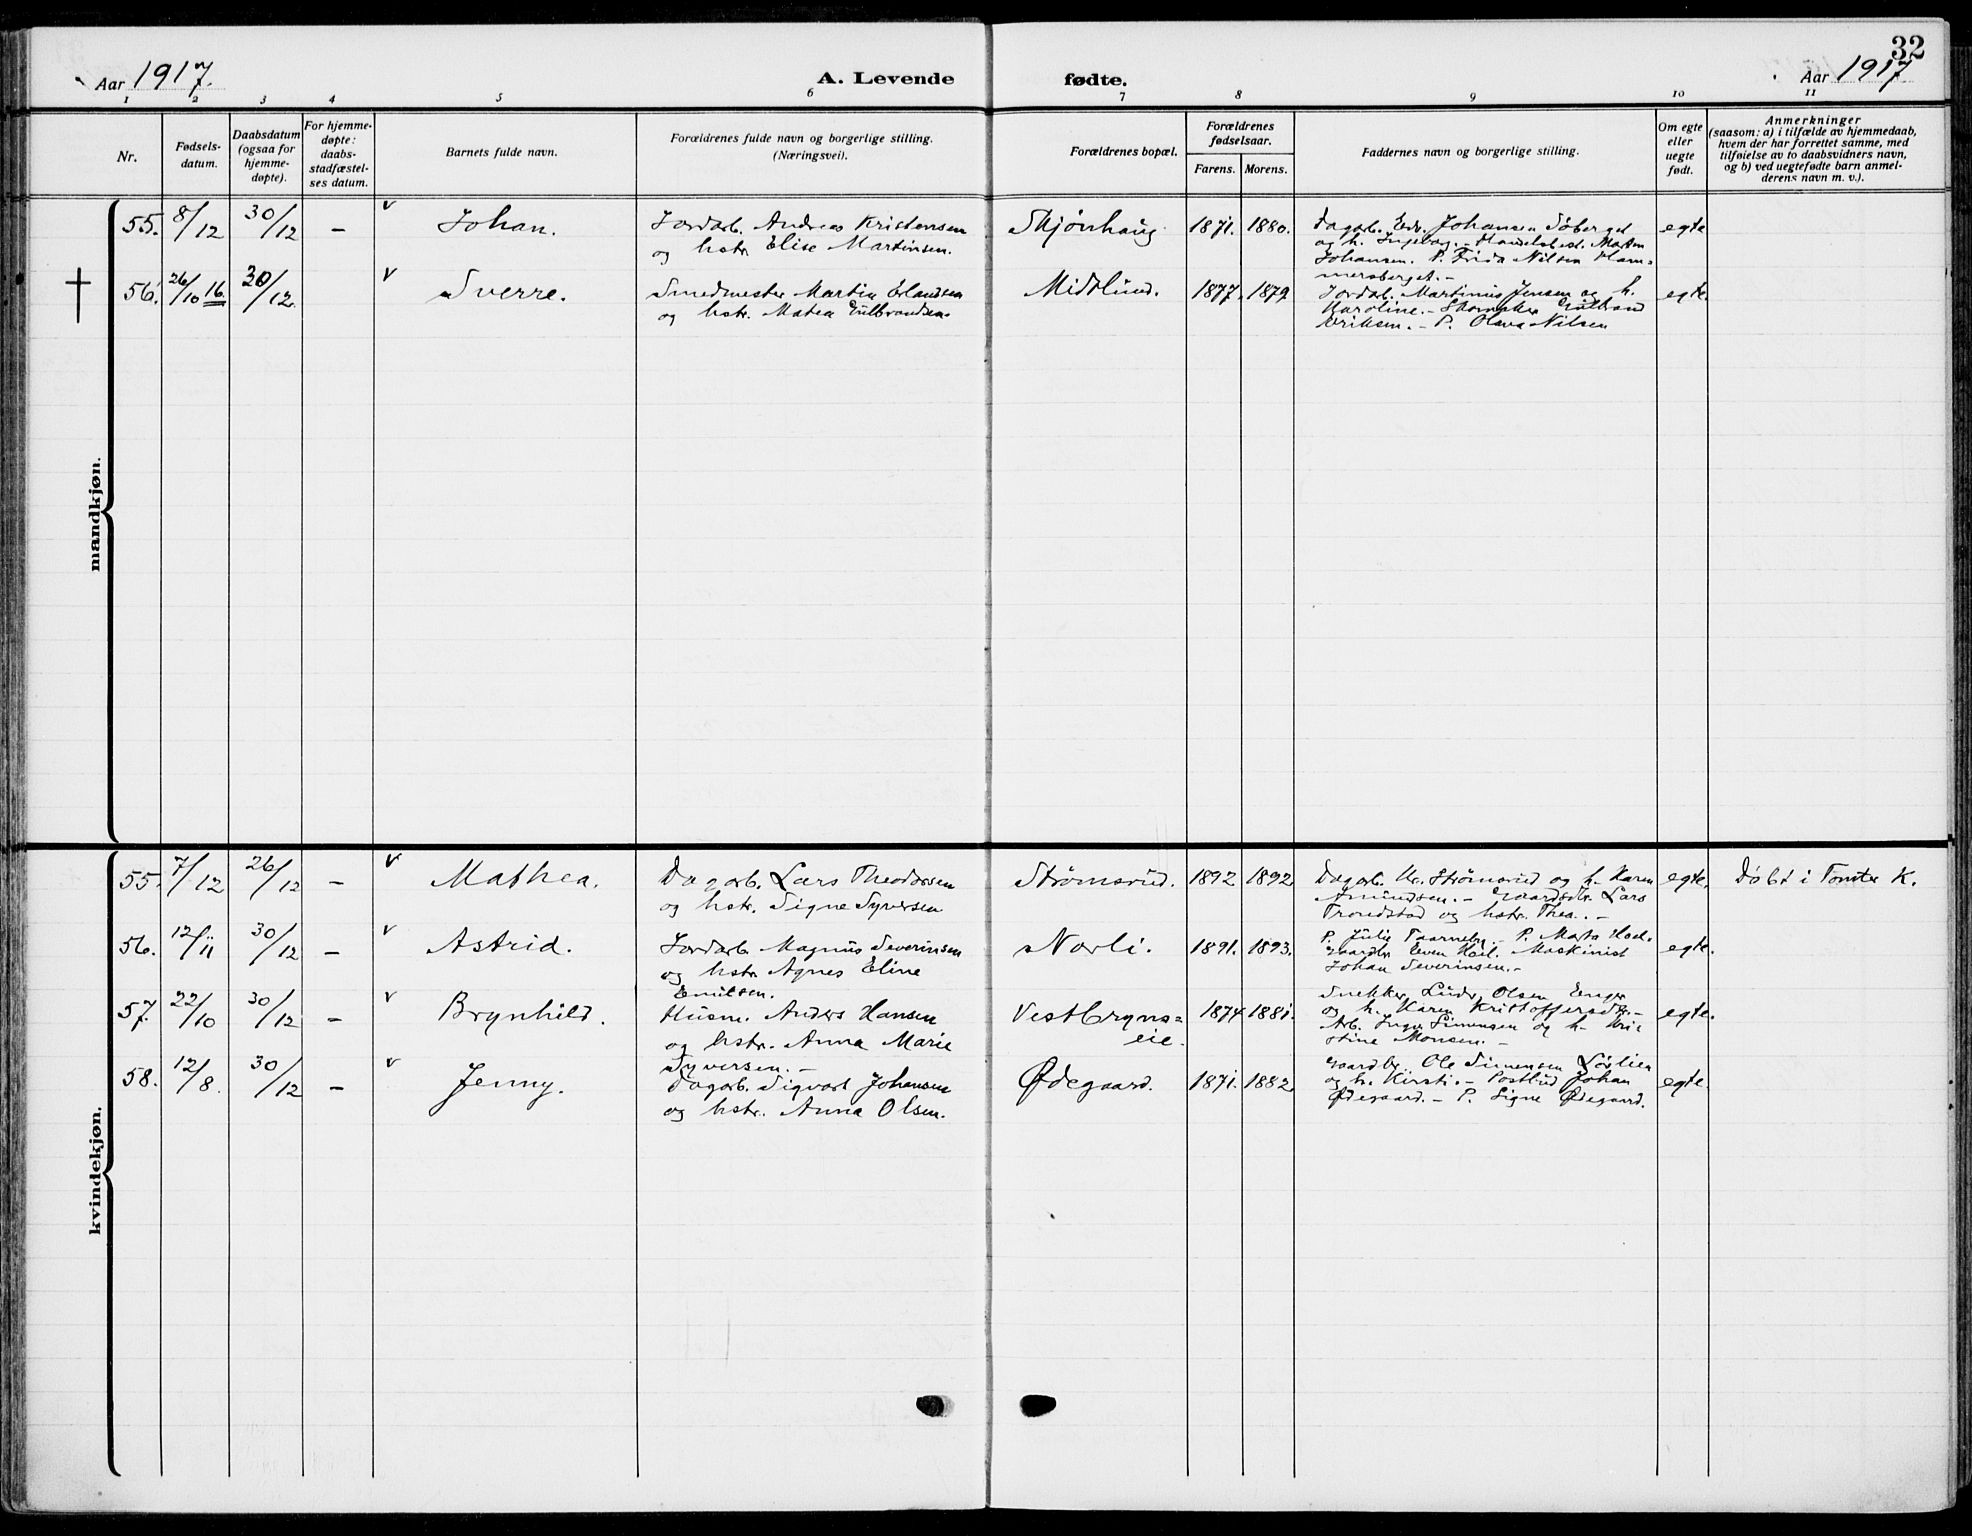 32
Aar 1917.
A. Levende
fødte.
Aar 1917
1 2 3 4 5 6 7 8 9 10 11
Nr.
Fødsels-
datum.
Daabsdatum
(ogsaa for
hjemme-
døpte).
For hjemme-
døpte:
daabs-
stadfæstel-
ses datum.
Barnets fulde navn.
Forældrenes fulde navn og borgerlige stilling.
(Næringsvei).
Forældrenes bopæl.
Forældrenes
fødselsaar.
Farens. Morens.
Faddernes navn og borgerlige stilling.
Om egte
eller
uegte
født.
Anmerkninger
(saasom: a) i tilfælde av hjemmedaab,
hvem der har forrettet samme, med
tilføielse av to daabsvidners navn,
og b) ved uegtefødte barn anmel-
derens navn m. v.).
mandkjøn.
55. 8/12 30/12 – v Johan.
Jordarb. Andreas Kristensen
og hstr. Elise Martinsen.
Skjønhaug 1871. 1880.
Dagarb. Edv. Johansen Söberget
og h. Ingeborg. – Handelsbest. Morten
Johansen. P. Frida Nilsen Ham-
mersberget. –
egte
† 56. 26/10 16. 30/12. v Sverre.
Smedmester Martin Erlandsen
og hstr. Matea Gulbrandsen.
Midtlund. 1877. 1879
Jordarb. Martinus Jensen og h.
Karoline. – Skomaker Gulbrand
Eriksen. – P. Olava Nilsen
egte
kvindekjøn.
55. 7/12 26/12 – v Mathea.
Dagarb. Lars Theodorsen
og hstr. Signe Syversen
Strømsrud. 1892 1892
Dagarb. Kr. Strømsrud og h. Karen
Amundsen. – Gaardbr. Lars
Trondstad og hstr. Thea. –
egte.
Döbt i Tomter K.
56. 12/11 30/12 – v Astrid.
Jordarb. Magnus Severinsen
og hstr. Agnes Eline
Emilsen.
Norli. 1891. 1893.
P. Julie Taarneby. – P. Marta Hoel.
Gaardbr. Even Hoel. Maskinist
Johan Severinsen. –
egte.
57. 22/10 30/12 – v Brynhild.
Husm. Anders Hansen
og hstr. Anna Marie
Syversen. –
Vestbryns=
eie. 1874 1881.
Snekker Ludv. Olsen Enger
og h. Karen Kristoffersdtr. –
Arb. Ingv. Simensen og h. Kri
stine Monsen. –
egte.
58. 12/8. 30/12 – v Jenny.
Dagarb. Sigvart Johansen
og hstr. Anna Olsen.
Ødegaard. 1871. 1882
Gaardbr. Ole Simensen Lørlien
og h. Kirsti. – Postbud Johan
Ødegaard. – P. Signe Ødegaard.
egte